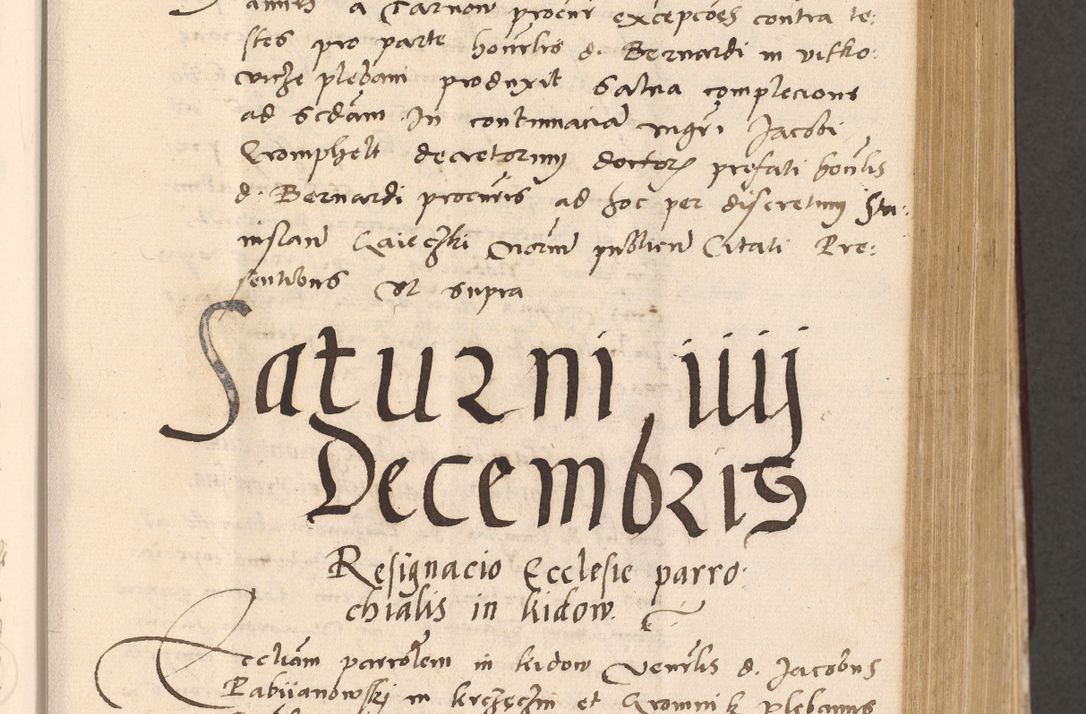 annes a Tarnow procur excepcões contra te:
stes pro parte honrlis d. Bernardi in vitko:
vicze plebani produxit salva complecione
ad scdam In contumaciã mgri Jacobi
Cromphelt decretorum doctor prefati honrlis
d. Bernardi procuris ad hoc per discretum Sta:
nislaũ Gaieczki Noriũ publicũ Citati Pre:
sentibus Ut supra
Saturni iiij
Decembris
Resignacio Ecclesie parro:
chialis in kidow.
Eccliam parrolem in kidow Venerlis d. Jacobus
Rabiianowskj in kerczęczin et Cromnik plebanus